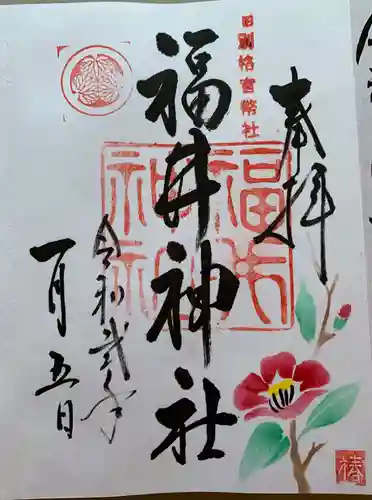 奉拝
旧別格官幣社
福井神社
福井
神社
令和弐年
一月五日
椿